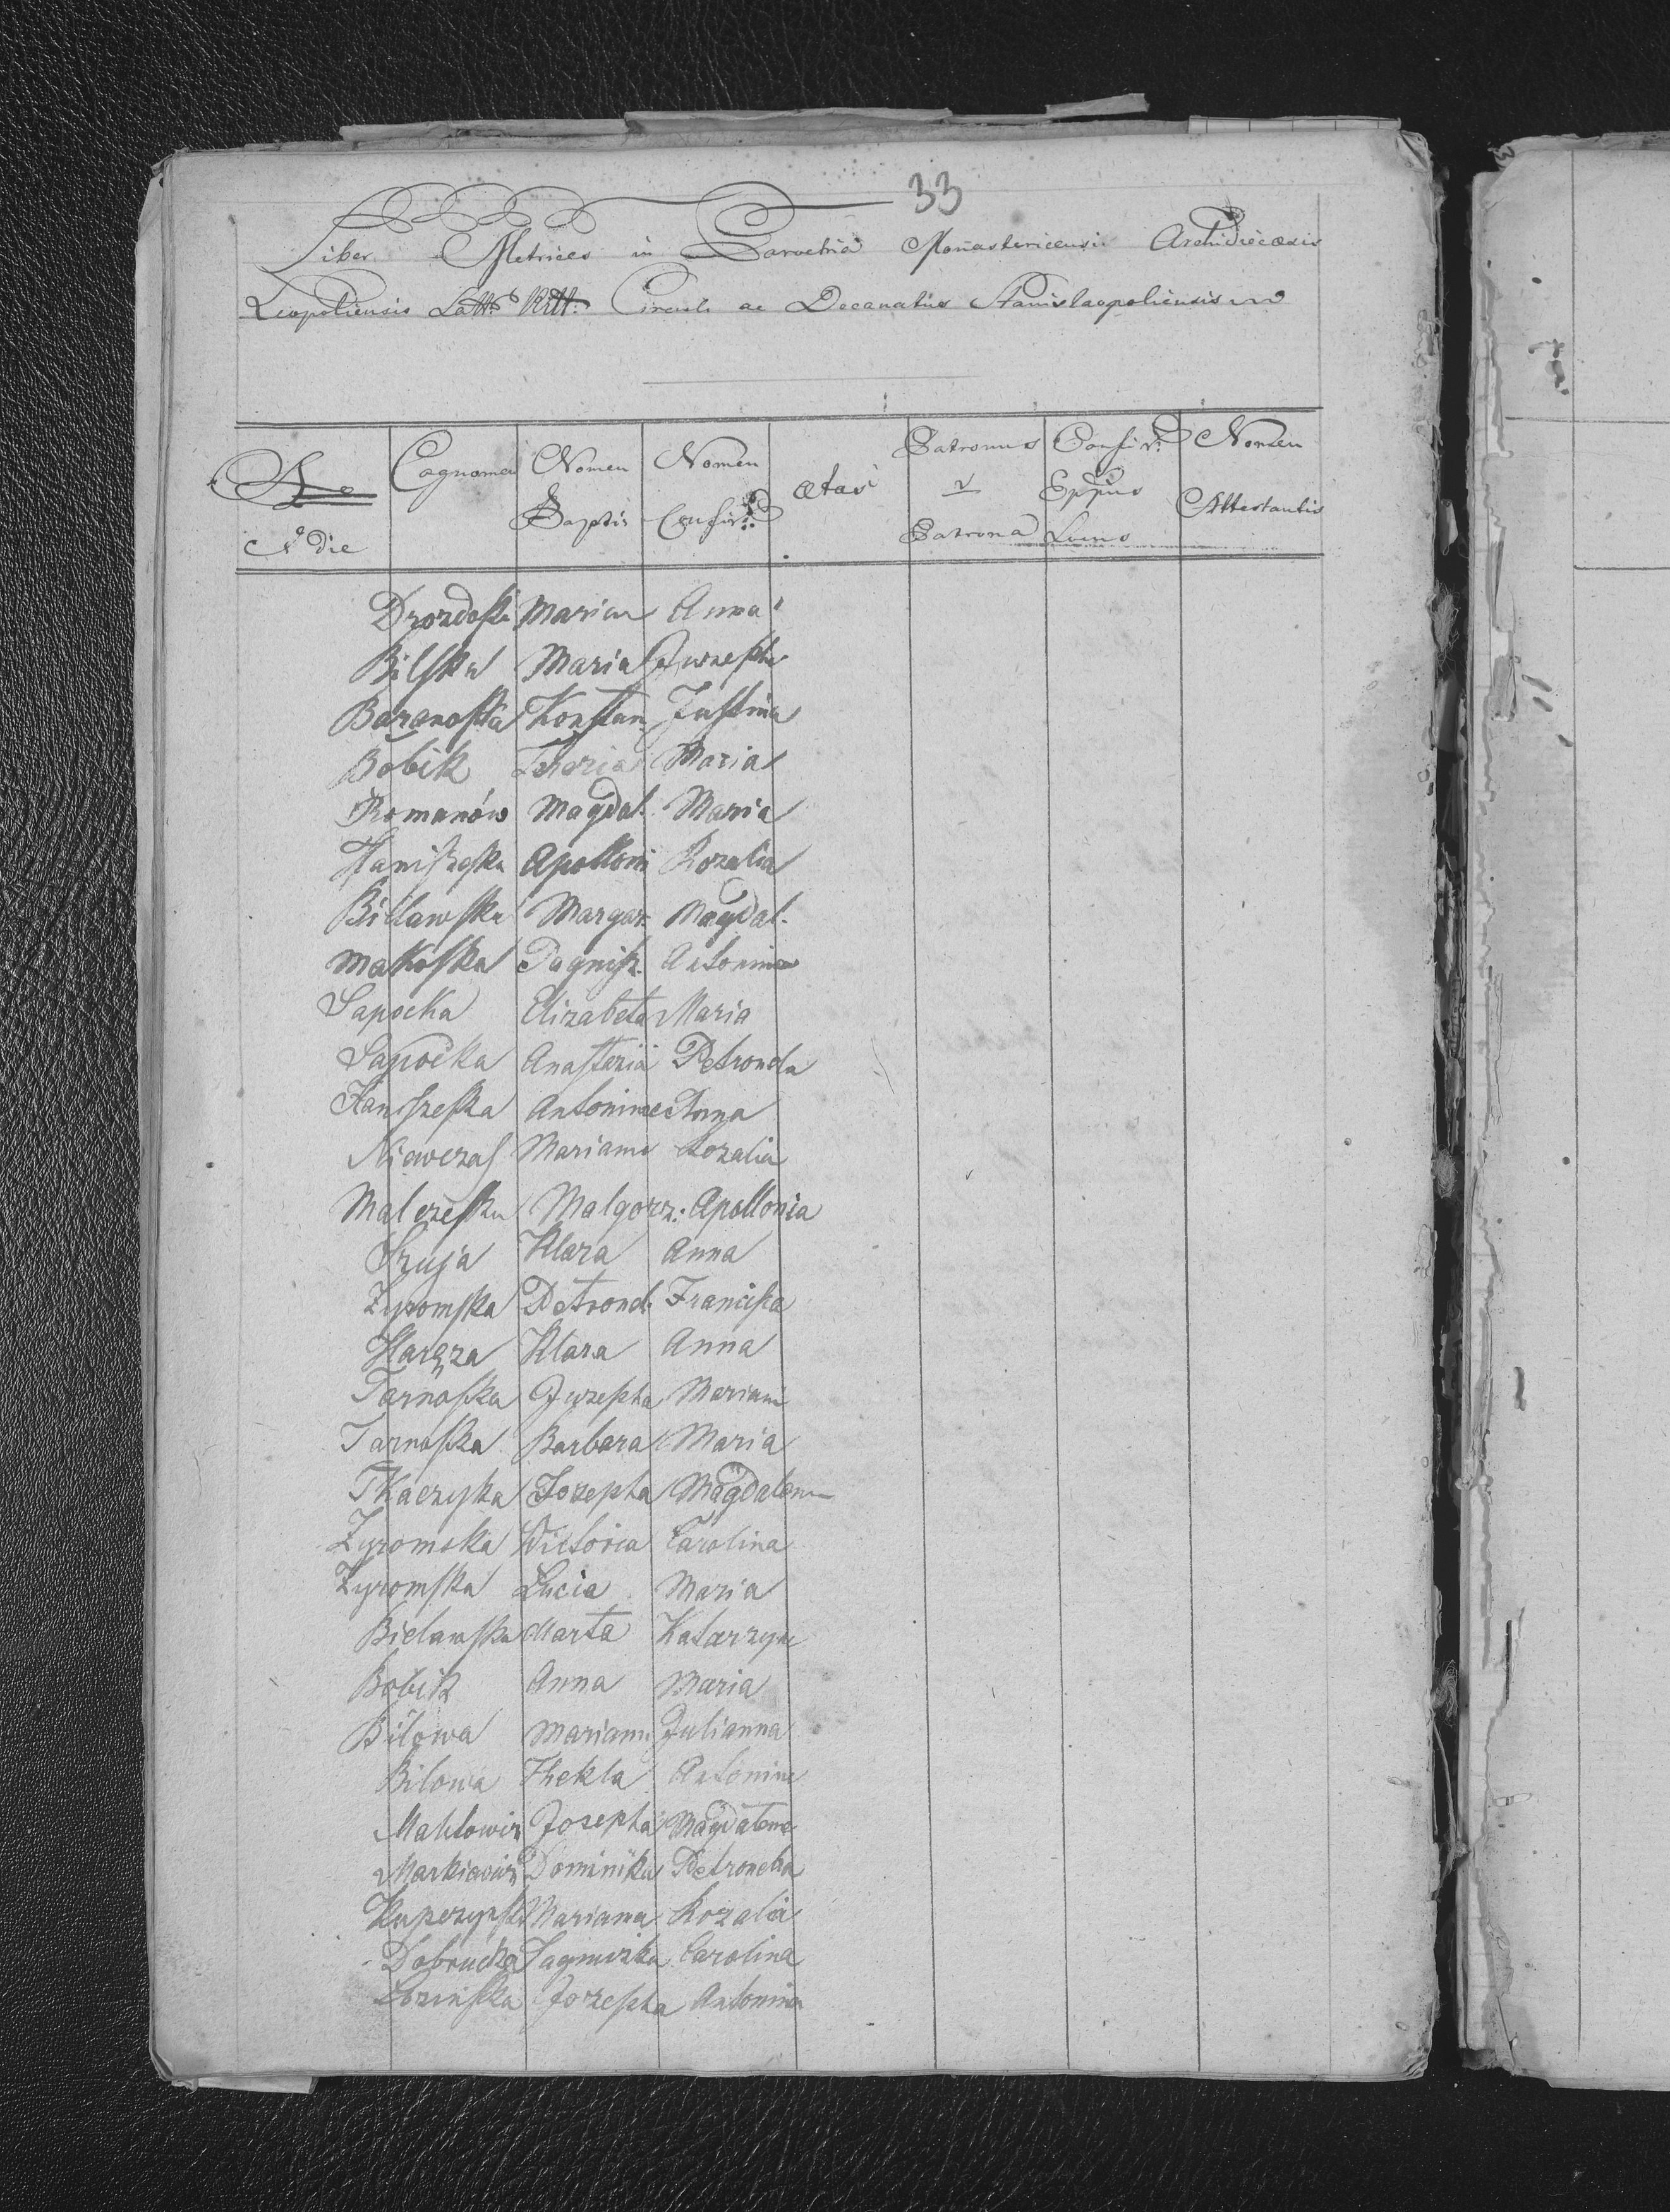 33
Liber Metrices in Parochia Monastericensi Archidiecesis
Leopoliensis Latt: Ritt: Circuli ac Decanatus Stanislaopoliensis
Ao & die Cognomen Nomen Baptis Nomen Confir: ætas Patronus v Patrona Confir: Eppus Locus Nomen Attestantis
Drozdoska Marian Anna
Bilska Maria Juzepha
Baranoska Konstan Justina
Bobik Maria
Romanów Magdal. Maria
Haniszeska Apolloni Rozalia
Billawska Margar. Magdal.
Makoska Jagnisz. Antonina
Sapocka Elizabeta Maria
Sapocka Anastazia Petronela
Haniszeska Antonina Anna
Niawczas Mariana Rozalia
Malczeska Malgorz: Apollonia
Szuja Klara Anna
Zyromska Petronel. Franciska
Haręza Klara Anna
Tarnoska Juzepha Mariani
Tarnoska Barbara Maria
Tkaczyska Jozepha Magdalena
Zyromska Victoria Carolina
Zyromska Lucia Maria
Bielawska Marta Katarzyna
Bobik Anna Maria
Bilowa Mariana Julianna
Bilowa Thekla Antonina
Josepha Magdalena
Markiewicz Dominika Petronela
Kupczynska Mariana Rozalia
Dobrucka Jagniszka Carolina
Łozinska Jozepha Antonina